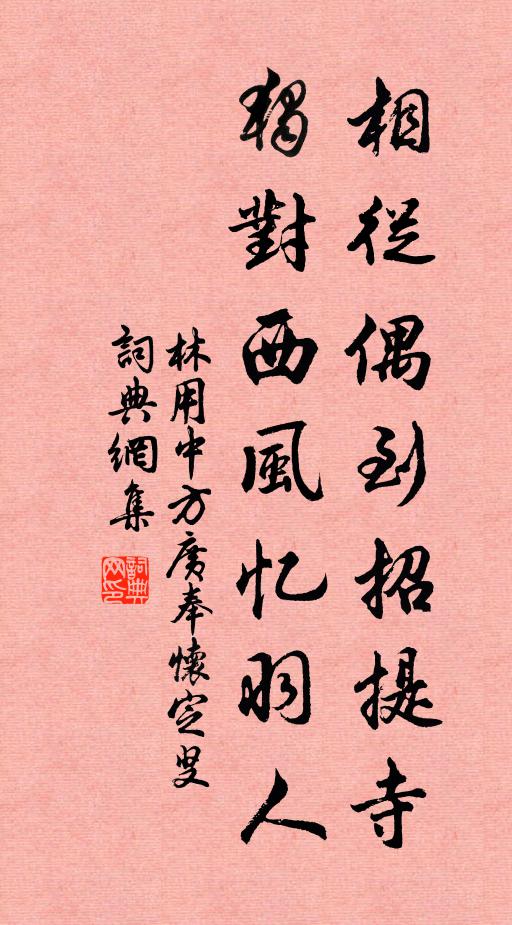 相從偶到招提寺
獨對西風忆羽人
林用中方廣奉懷定叟
詞典網集
詞典网印